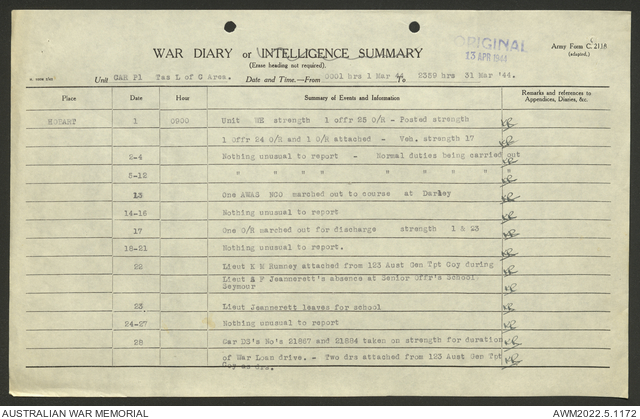 ORIGINAL
13 APR 1944
Army Form C. 2118
(adapted.)
WAR DIARY or INTELLIGENCE SUMMARY
(Erase heading not required).
Unit CAR Pl Tas L of C Area. Date and Time.—From 0001 hrs 1 Mar 44 To 2359 hrs 31 Mar '44.
Place Date Hour Summary of Events and Information Remarks and references to
Appendices, Diaries, &c.
HOBART 1 0900 Unit WE strength 1 offr 25 O/R - Posted strength
1 Offr 24 O/R and 1 O/R attached - Veh. strength 17
2-4 Nothing unusual to report - Normal duties being carried out
5-12 " " " " " " " " "
13 One AWAS NCO marched out to course at Darley
14-16 Nothing unusual to report
17 One O/R marched out for discharge strength 1 & 23
18-21 Nothing unusual to report.
22 Lieut K M Rumney attached from 123 Aust Gen Tpt Coy during
Lieut A F Jeannerett's absence at Senior Offr's School
Seymour
23 Lieut Jeannerett leaves for school
24-27 Nothing unusual to report
28 Car DS's No's 21867 and 21884 taken on strength for duration
of War Loan drive. - Two drs attached from 123 Aust Gen Tpt
Coy as drs.
AUSTRALIAN WAR MEMORIAL AWM2022.5.1172